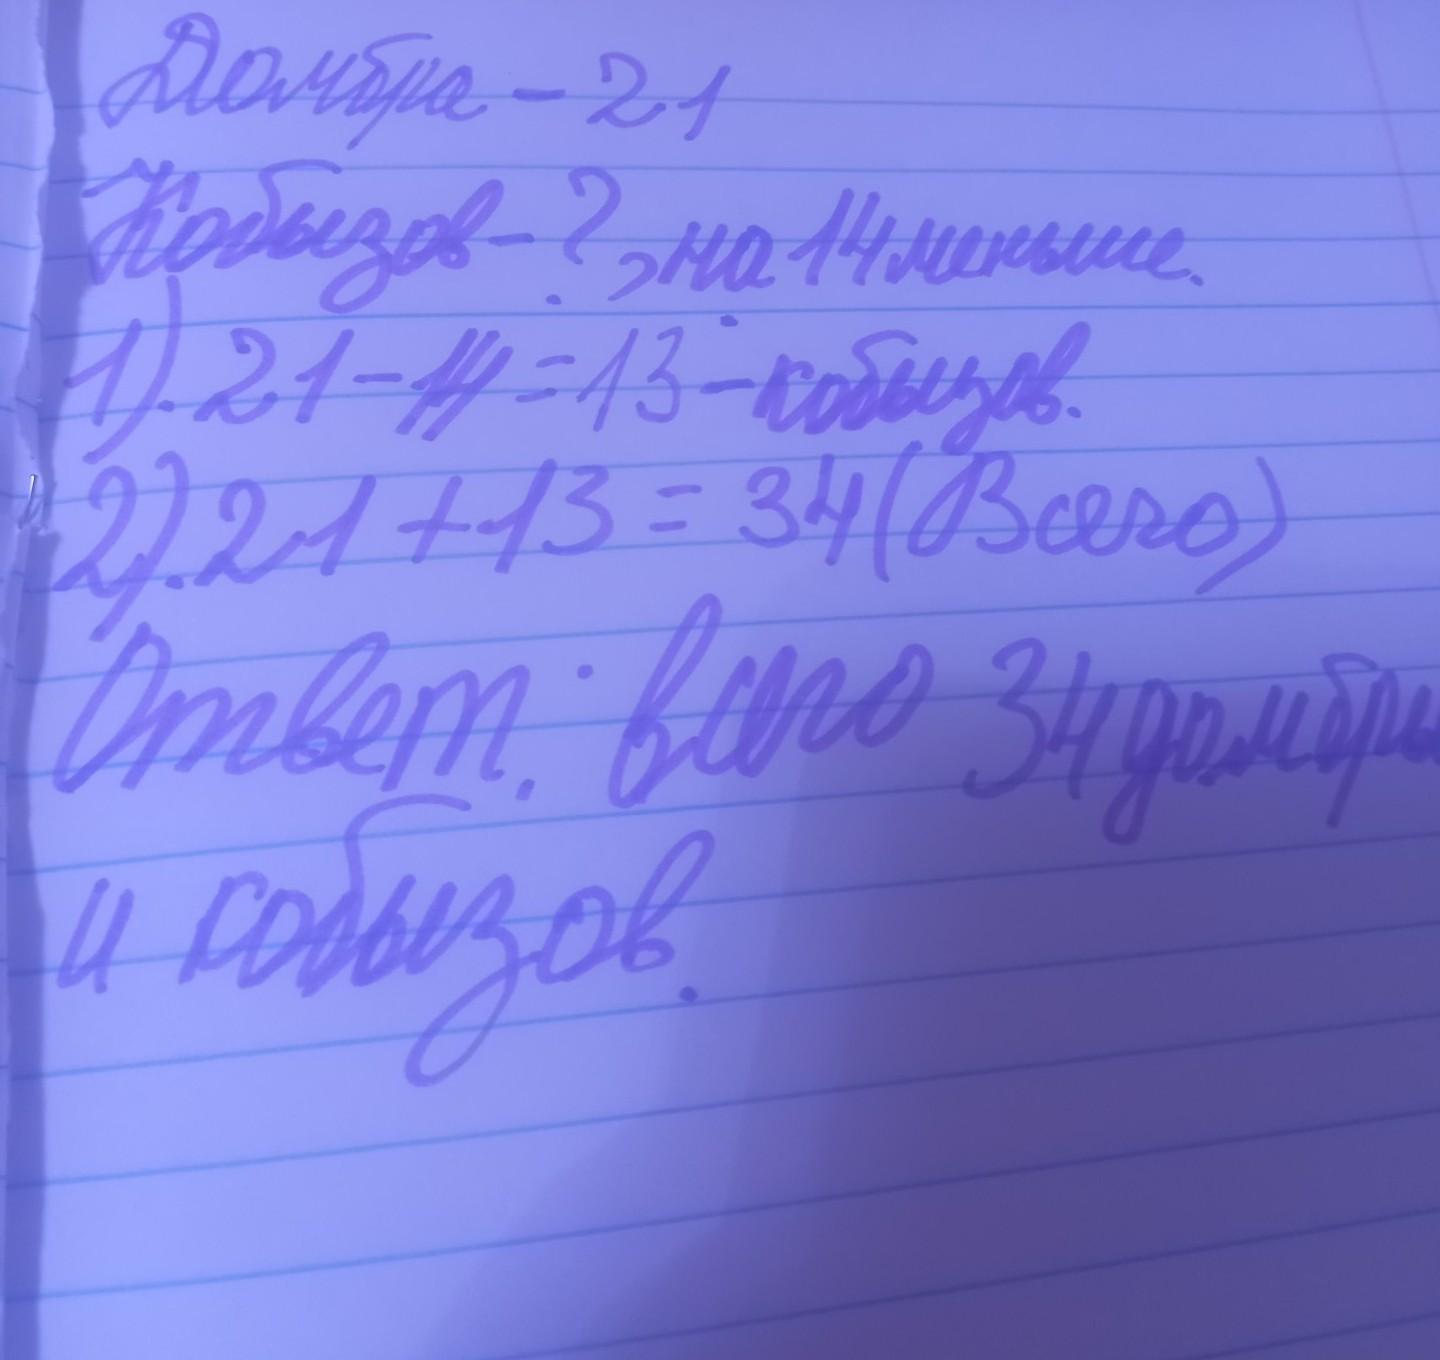 Домбра - 21
Кобызов - ?, на 14 меньше.
1). 21 - 14 = 13 - кобызов.
2). 21 + 13 = 34 (Всего)
Ответ: всего 34 домбры
и кобызов.